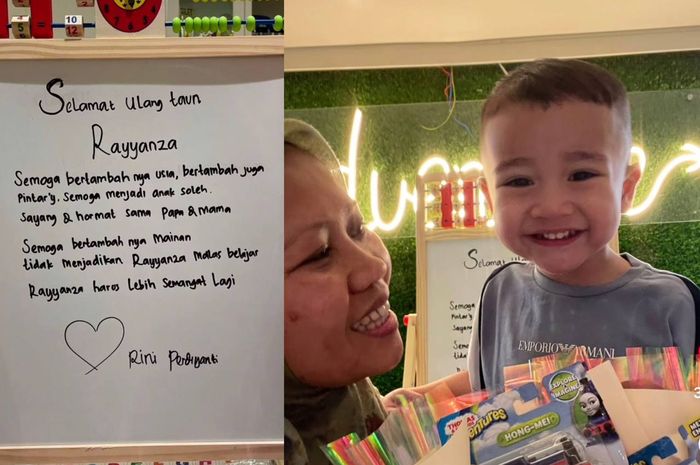 Selamat ulang taun
Rayyanza
Semoga bertambah nya usia, bertambah juga
Pintar'y. Semoga menjadi anak soleh.
Sayang & hormat sama Papa & Mama
Semoga bertambah nya Mainan
tidak menjadikan Rayyanza Malas belajar
Rayyanza haros Lebih Semangat Lagi
Rini Perdiyanti
10
5
12
Selamat
Semoga
Pintar'y
Sayang
EMPORIO ARMANI
EXPLORE &
IMAGINE
THOMAS
HONG-MEI